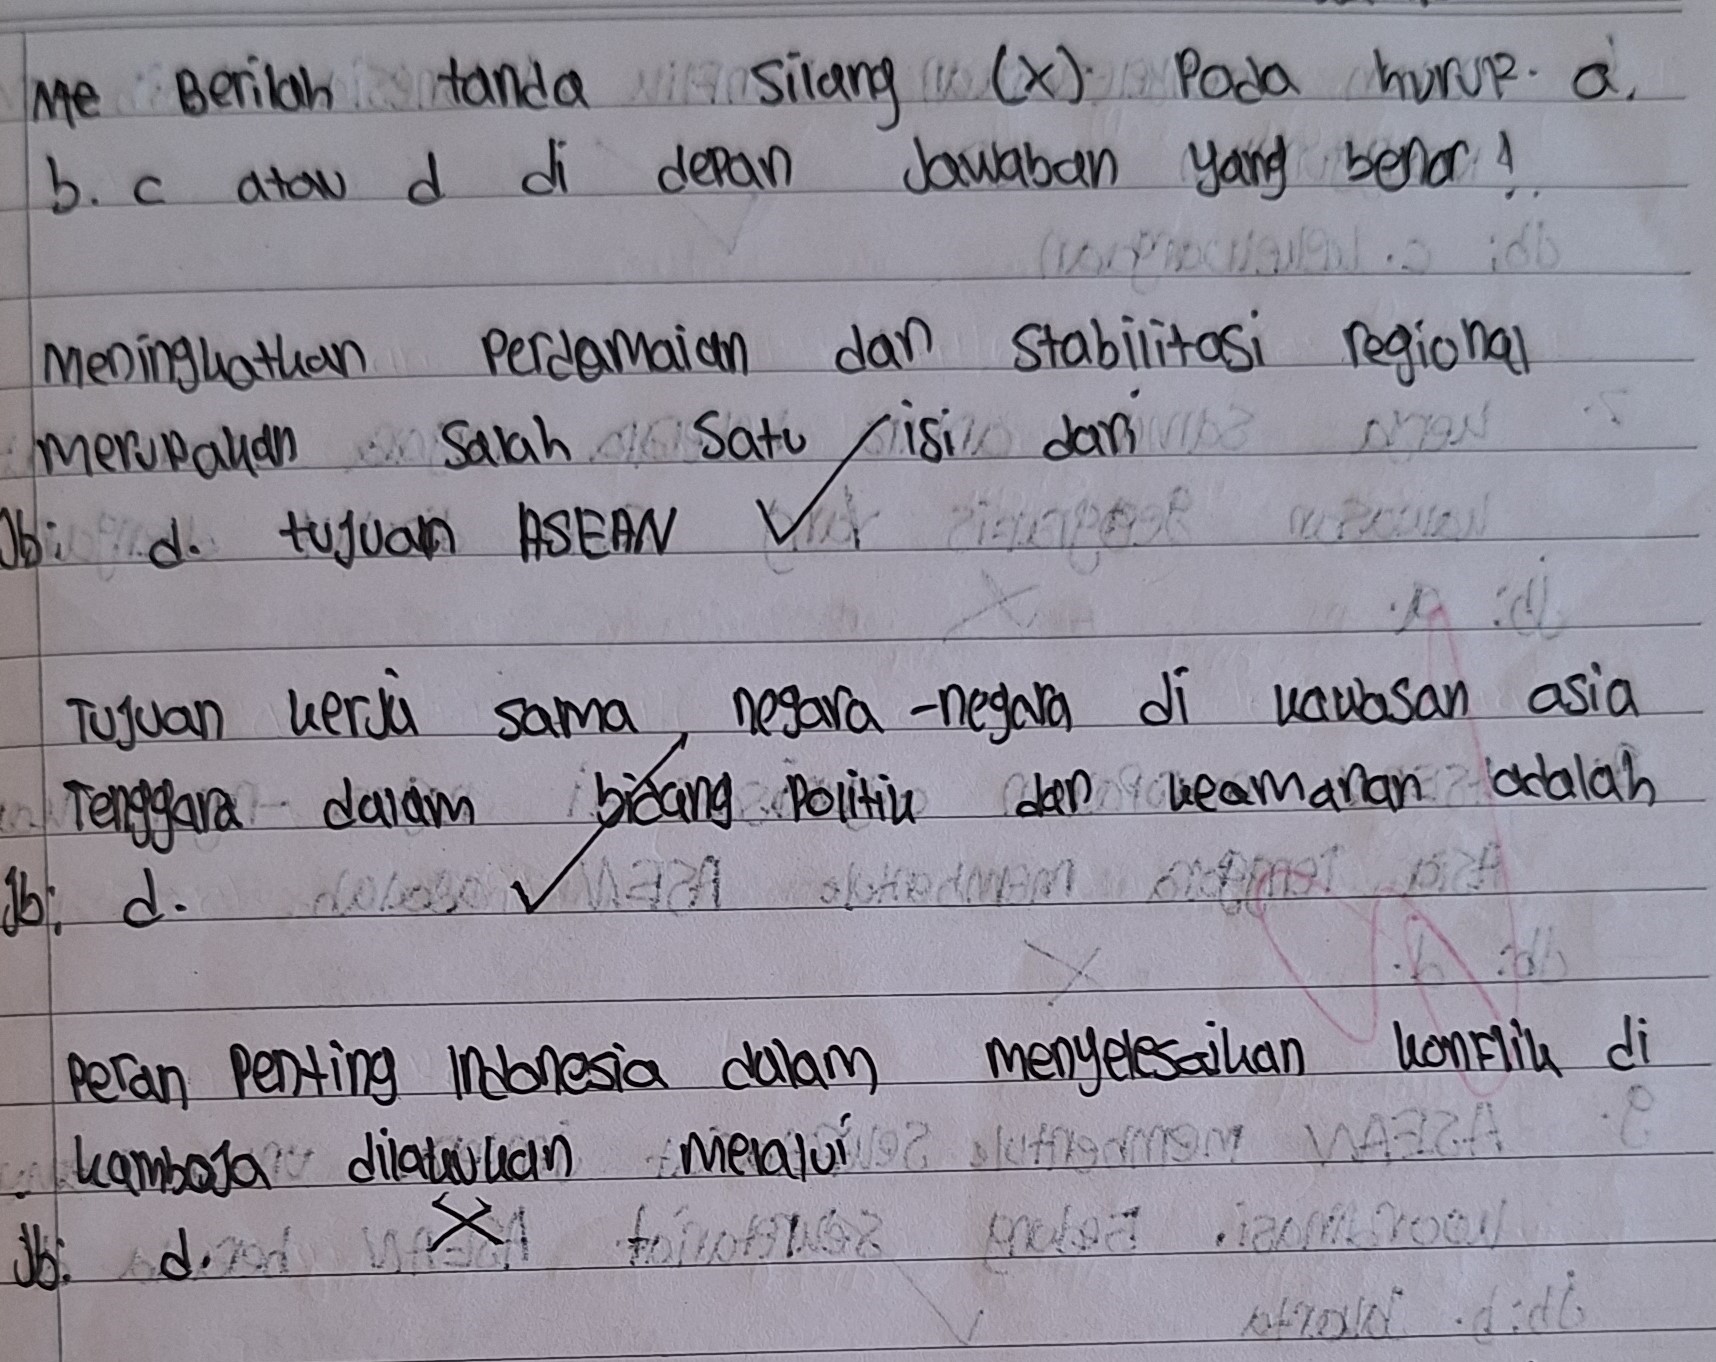 Me Berilah tanda silang (x) Pada hurup. a.
b. c atau d di depan Jawaban yang benar!
Meningkatkan Perdamaian dan stabilitasi regional
merupakan Salah Satu isi dari
Jb: d. tujuan ASEAN
Tujuan kerja sama negara-negara di kawasan asia
Tenggara dalam bidang Politik dan keamanan adalah
Jb: d.
Peran Penting Indonesia dalam menyelesaikan konflik di
kamboja dilakukan melalui
Jb: d.